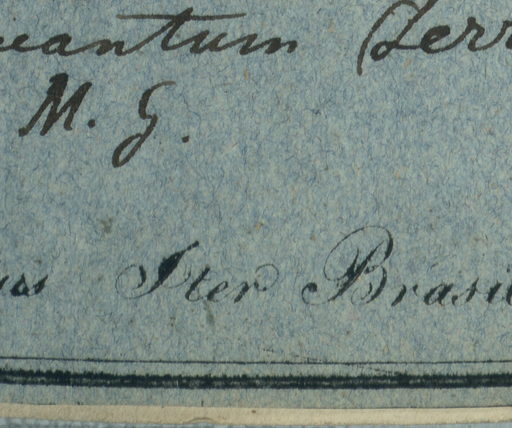 ueantum Serr
M. G.
us Iter Brasil